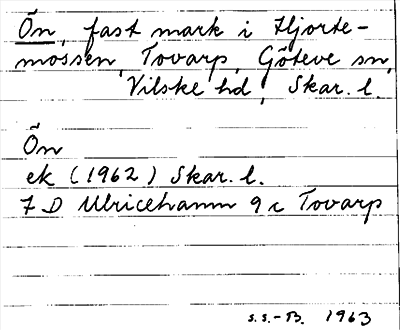 Ön, fast mark i Hjorte-
mossen, Tovarp, Göteve sn,
Vilske hd, Skar. l.
Ön
ek (1962) Skar. l.
7 D Ulricehamn 9 c Tovarp
s.s.-B. 1963